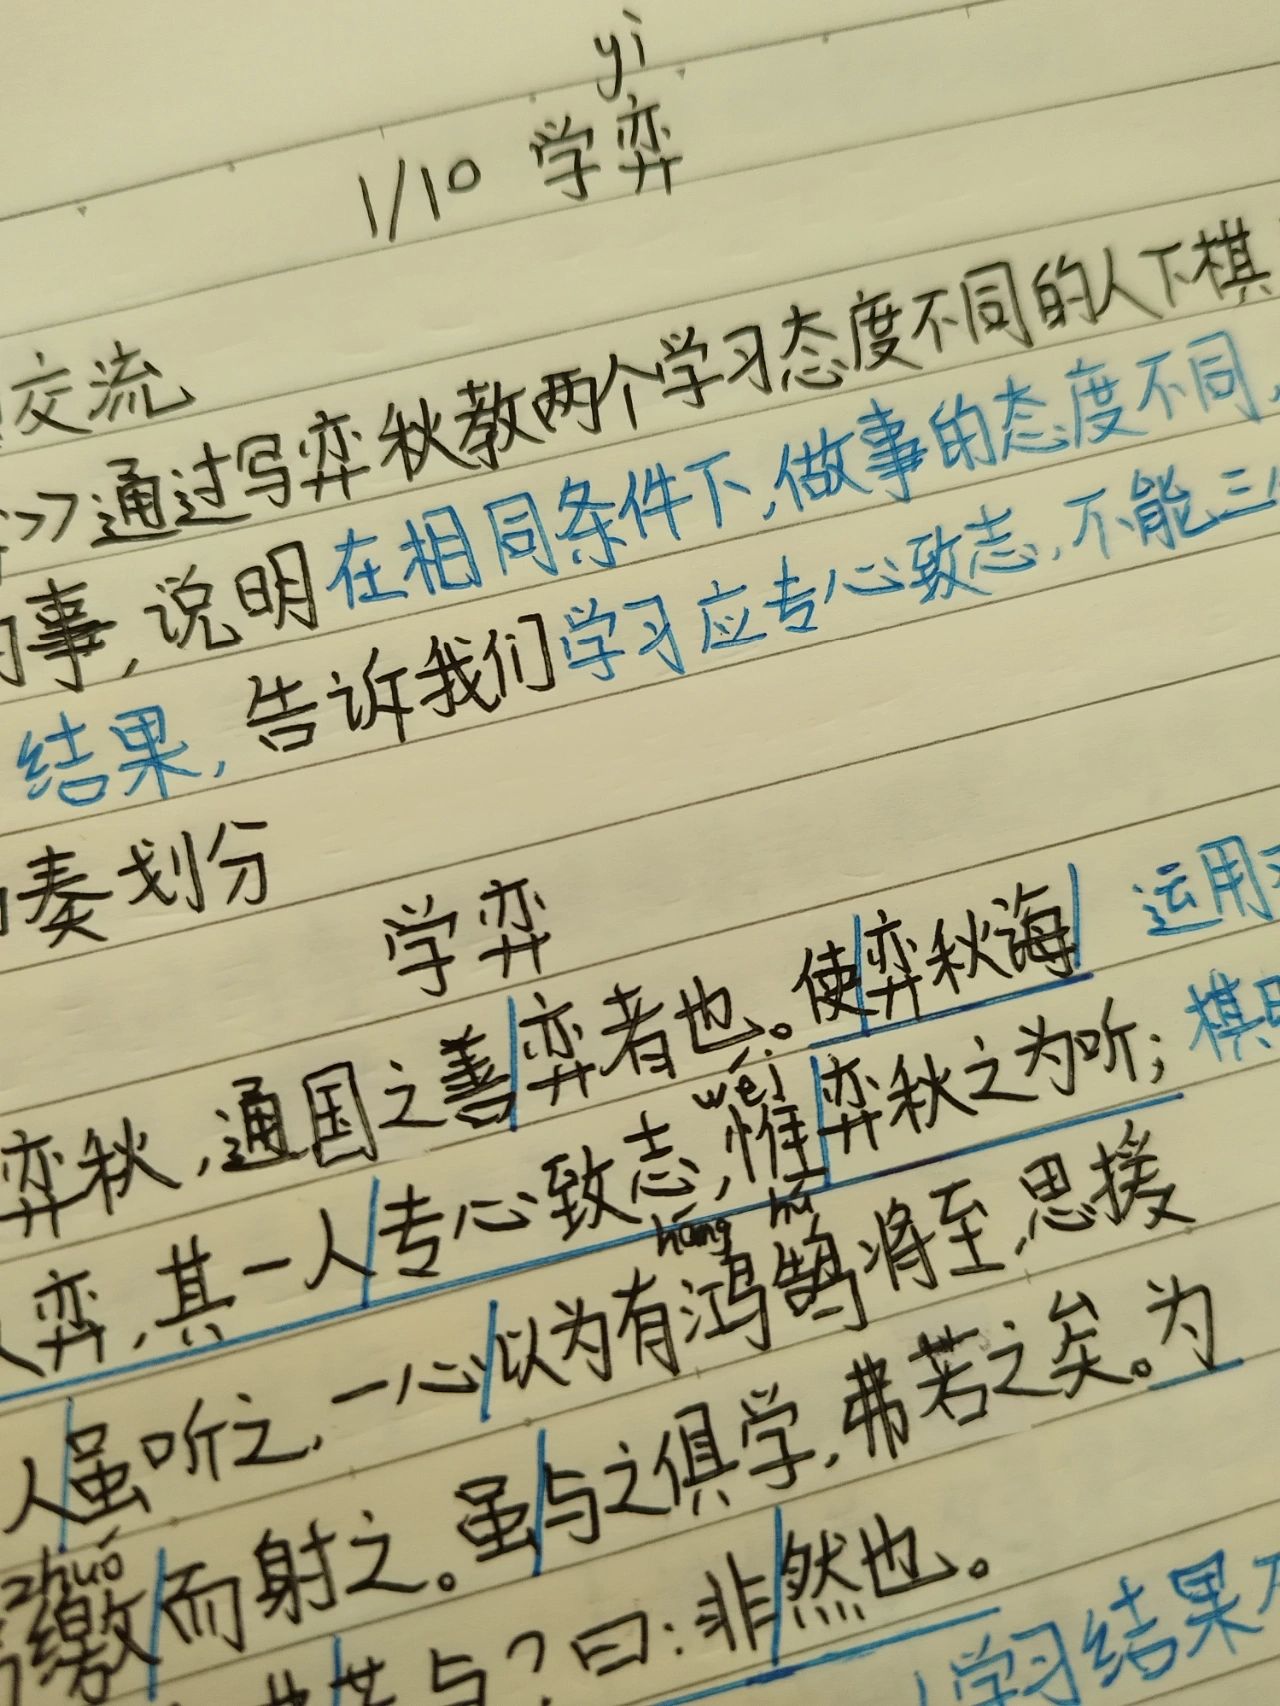 yì
1/10 学弈
交流
>>通过写弈秋教两个学习态度不同的人下棋
事,说明在相同条件下,做事的态度不同,
结果,告诉我们学习应专心致志,不能三
奏划分
学弈
弈秋,通国之善/弈者也。使/弈秋诲/ 运用
wéi
弈,其一人/专心致志,惟/弈秋之为听; 棋
hóng hú
人/虽听之,一心/以为有鸿鹄将至,思援
zhuó
缴/而射之。虽/与之俱学,弗若之矣。为
与?曰:非/然也。
学习结果不